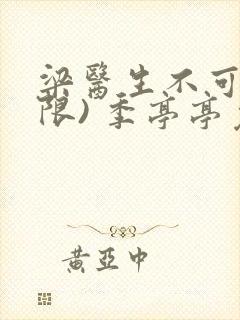 梁醫生不可
限) 季亭亭
黃亞中